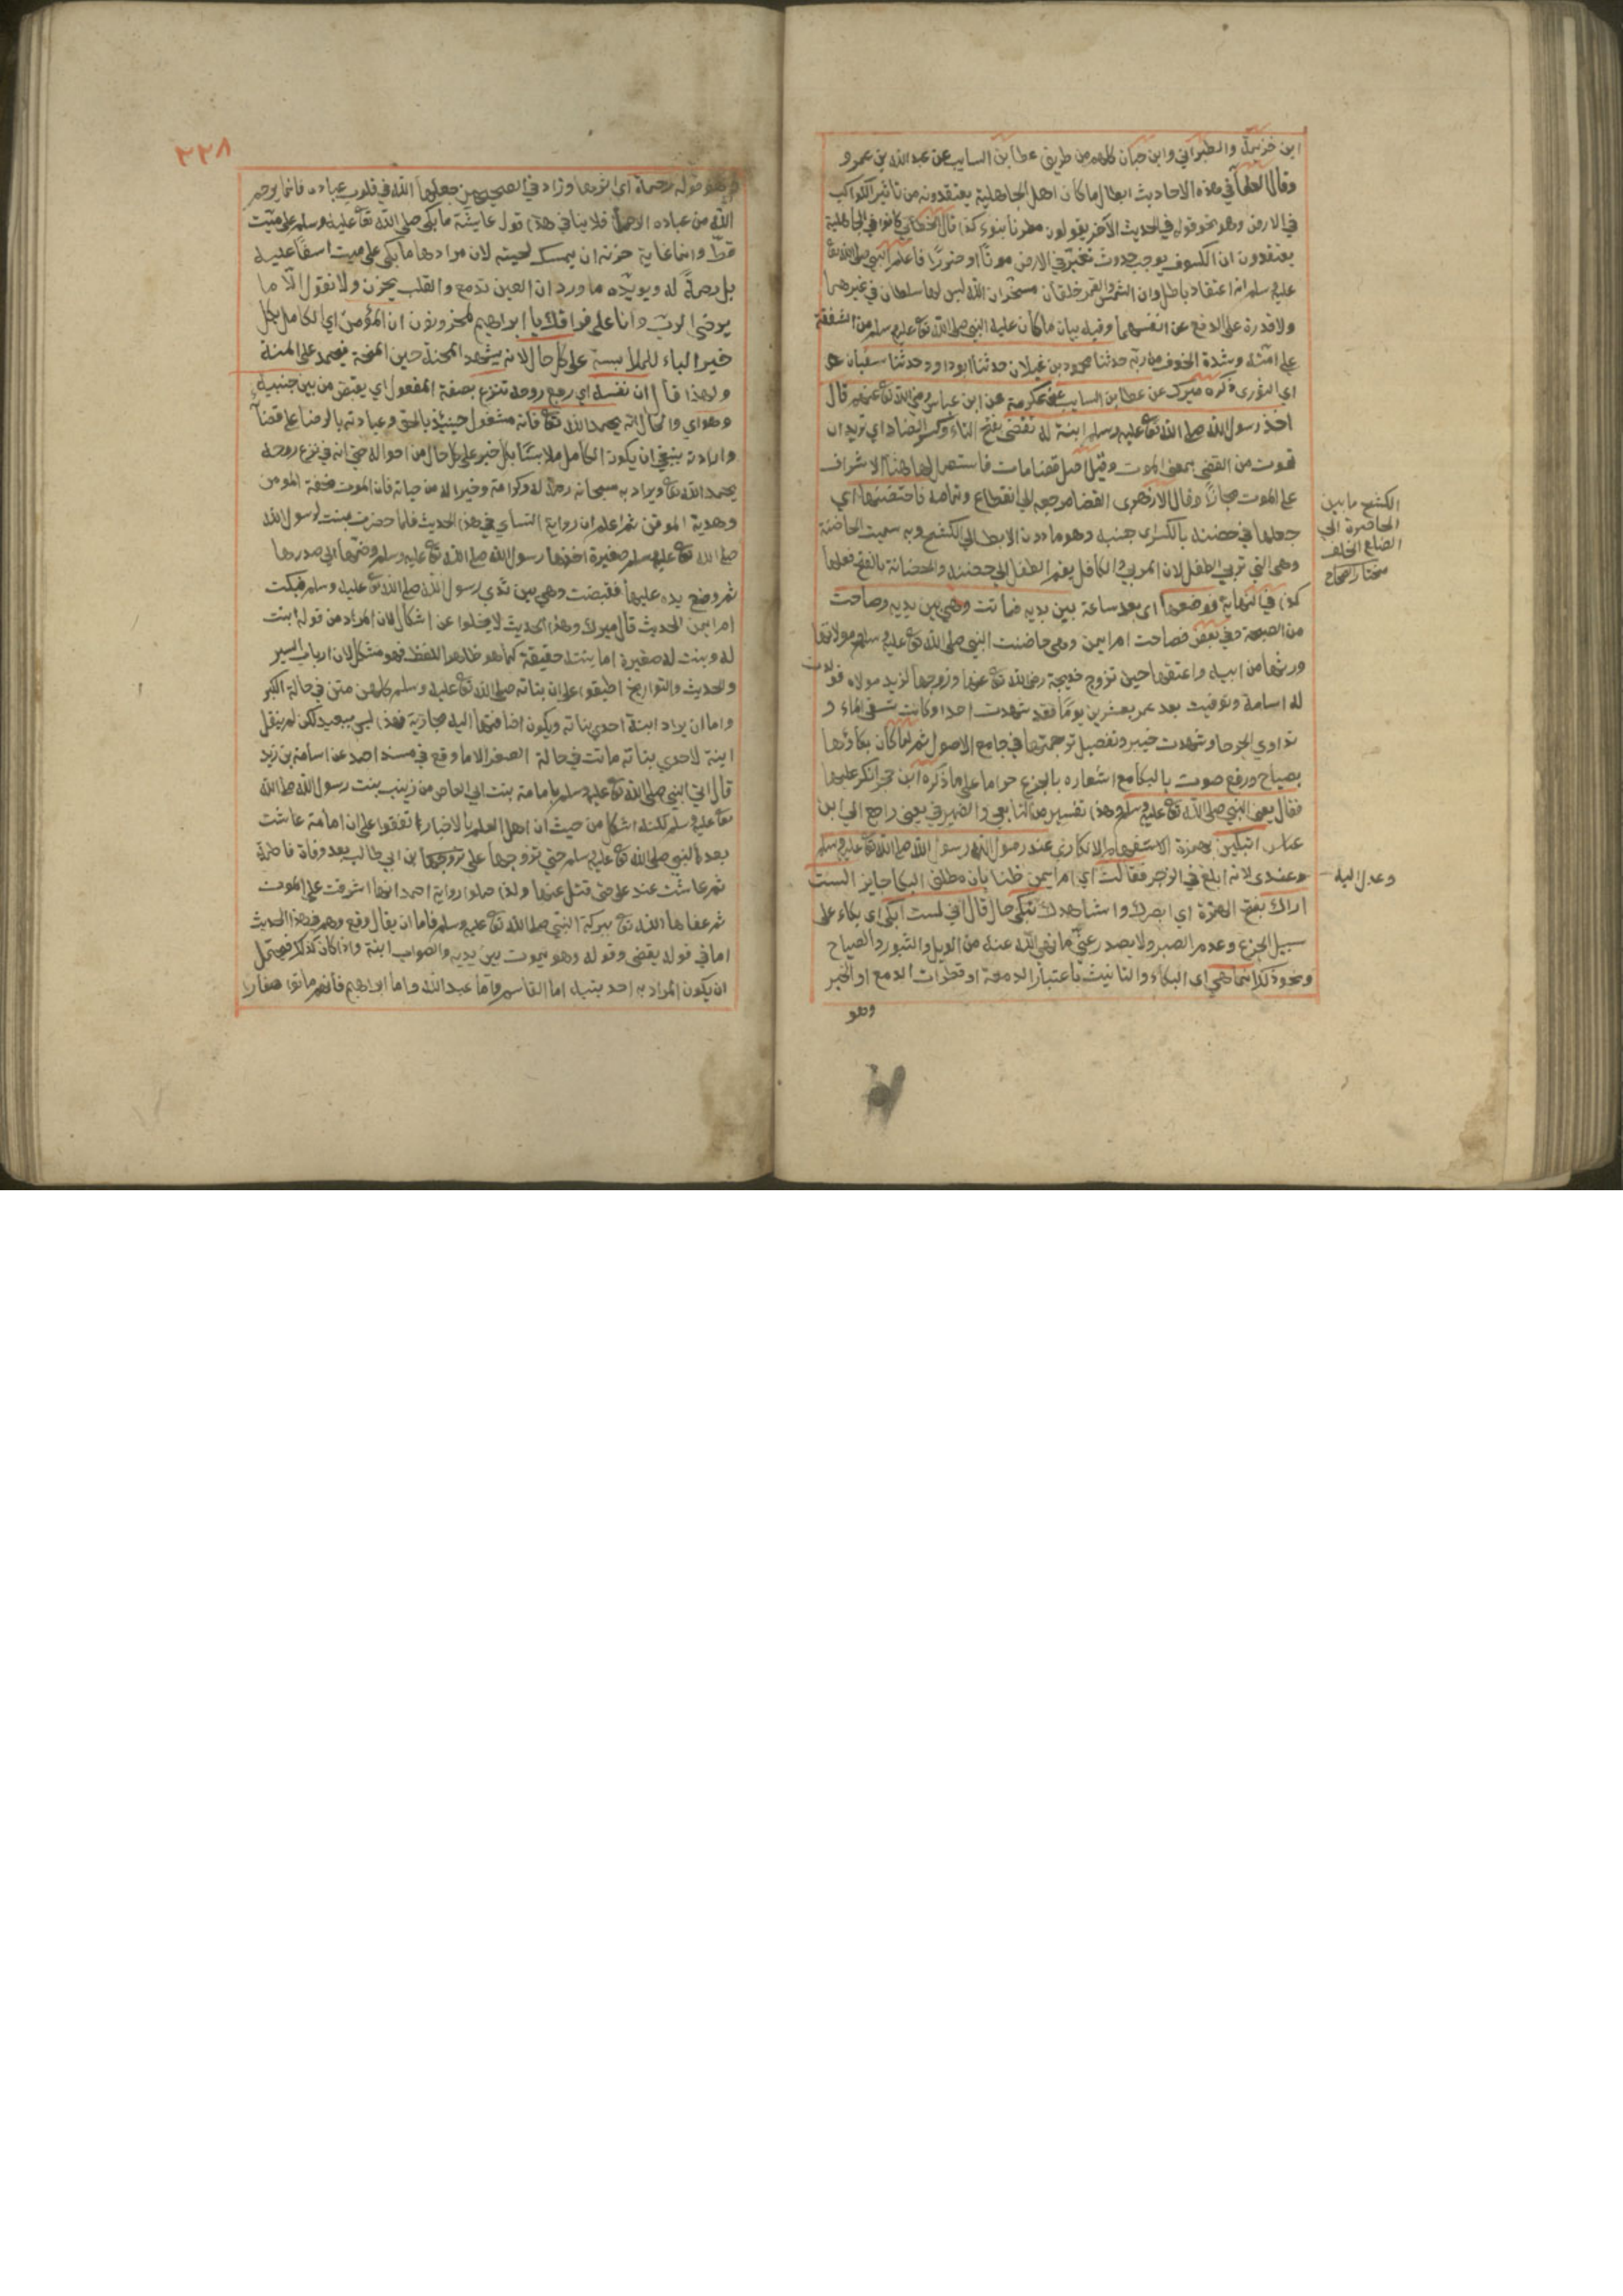 ابن خزيمة والطبراني وابن حبان كلهم من طريق عطا بن السايب عن عبد الله بن عمرو
وقال العلما في هذه الاحاديث ابطال ما كان اهل الجاهلية يعتقدونه من تاثير الكواكب
في الارض وهو نحو قوله في الحديث الآخر يقولون مطرنا بنوء كذا قال الخطابي كانوا في الجاهلية
يعتقدون ان الكسوف يوجب حدوث تغير في الارض موتًا او ضررًا فاعلم النبي صلى الله تعا
عليه وسلم انه اعتقاد باطل وان الشمس والقمر خلقان مسخران لله ليس لهما سلطان في غيرهما
ولا قدرة على الدفع عن انفسهما وفيه بيان ما كان عليه النبي صلى الله تعا عليه وسلم من الشفقة
على امته وشدة الخوف من ربه حدثنا محمود بن غيلان حدثنا ابو داود حدثنا سفيان هو
اي الثوري ذكره ميرك عن عطا بن السايب عن عكرمة عن ابن عباس رضي الله تعا عنهم قال
اخذ رسول الله صلى الله تعا عليه وسلم ابنة له تقضي بفتح التاء وكسر الضاد اي تريد ان
تموت من القضى بمعنى الموت وقيل اصل قضا مات فاستعمال لها هنا الاشراف
على الموت مجازًا وقال الازهري القضا مرجعه الى انقطاع وتمامه فاحتضنها اي
جعلها في حضنه بالكسر اي جنبه وهو ما دون الابط الى الكشح وبه سميت الحاضنة
وهي التي تربي الطفل لان المربي والكافل يضم الطفل الى حضنه والحضانة بالفتح فعلها
كذا في النهاية فوضعها اي بعد ساعة بين يديه فماتت وهي بين يديه وصاحت
من الصيحة وفي بعض فصاحت ام ايمن وهي حاضنت النبي صلى الله تعا عليه وسلم مولاتها
ورثها من ابيه واعتقها حين تزوج خديجة رضي الله تعا عنها وزوجها لزيد مولاه فولدت
له اسامة وتوفيت بعد عمر بعشرين يومًا فقد شهدت احدا وكانت تسقي الماء و
تداوي الجرحا وشهدت خيبر وتفصيل ترجمتها في جامع الاصول ثم لما كان بكاؤها
بصياح ورفع صوت بالبكا مع اشعاره بالجزع حراما على ما ذكره ابن حجر انكر عليها
فقال يعني النبي صلى الله تعا عليه وسلم وهذا تفسير من التابعي والضمير في يعني راجع الى ابن
عباس اتبكين بهمزة الاستفهام الانكاري عند رسول الله رسول الله صلى الله تعا عليه وسلم
وعندي لانه ابلغ في الزجر فقالت اي ام ايمن ظنا بان مطلق البكا جايز الست
اراك بفتح الهمزة اي ابصرك واشاهدك تبكي حال قال اني لست ابكي اي بكاء على
سبيل الجزع وعدم الصبر ولا يصدر عني ما نهى الله عنه من الويل والثبور والصياح
ونحو ذلك انما هي اي البكاء والتانيث باعتبار الدمعة او قطرات الدمع او الخبر
وهو
الكشح ما بين
الخاصرة الى
الضلع الخلف
مختار الصحاح
وعدل اليه
٢٢٨
وهو قوله رحمة اي اثرها وزاد في الصحيحين جعلها الله في قلوب عباده فانما يرحم
الله من عباده الرحماء فلا ينافي هذا قول عايشة ما بكى صلى الله تعا عليه وسلم على ميت
قط وانما غاية حزنه ان يمسك لحيته لان مرادها ما بكى على ميت اسفًا عليه
بل رحمةً له ويويده ما ورد ان العين تدمع والقلب يحزن ولا نقول الّا ما
يرضى الرب وانا على فراقك يا ابراهيم لمحزونون ان المؤمن اي الكامل بكل
خير الباء للملابسة على كل حال لانه يشهد المحنة عين المنحة فيحمد على المنة
ولهذا قال ان نفسه اي رفع روحه تنزع بصفة المفعول اي يقبض من بين جنبيه
وهو اي والحال انه يحمد الله تعا فانه مشغول حينيذ بالحق وعبادته بالرضا على قضآ
وارادته ينبغي ان يكون الكامل ملابسًا بكل خير على كل حال من احواله حتى انه في نزع روحه
يحمد الله تعا ويراد به سبحانه رحمة له وكرامة وخيرا له من حياته فان الموت تحفة المومن
وهدية الموقن ثم اعلم ان رواية النساي في هذا الحديث فلما حضرت بنت لرسول الله
صلى الله تعا عليه وسلم صغيرة اخذها رسول الله صلى الله تعا عليه وسلم وضمها الى صدرها
ثم وضع يده عليها فقبضت وهي بين يدي رسول الله صلى الله تعا عليه وسلم فبكت
ام ايمن الحديث قال ميرك وهذا الحديث لا يخلوا عن اشكال لان المراد من قوله ابنت
له وبنت له صغيرة اما بنته حقيقة كما هو ظاهر اللفظ فهو مشكل لان ارباب السير
والحديث والتواريخ اطبقوا على ان بناته صلى الله تعا عليه وسلم كلهن متن في حالة الكبر
واما ان يراد ابنة احدى بناته ويكون اضافتها اليه مجازية فهذا ليس ببعيد لكن لم ينقل
ابنة لاحدى بناته ماتت في حالة الصغر الا ما وقع في مسند احمد عن اسامة بن زيد
قال اتي النبي صلى الله تعا عليه وسلم بامامة بنت ابي العاص من زينب بنت رسول الله صلى الله
تعا عليه وسلم لكنه اشكل من حيث ان اهل العلم بالاخبار اتفقوا على ان امامة عاشت
بعد النبي صلى الله تعا عليه وسلم حتى تزوجها على بن ابي طالب بعد وفاة فاطمة
ثم عاشت عند علي حتى قتل عنها ولذا حملوا رواية احمد انها اشرفت على الموت
ثم عفاها الله تعا ببركة النبي صلى الله تعا عليه وسلم فاما ان يقال وقع وهم في هذا الحديث
اما في قوله يقضى وقوله وهو يموت بين يديه والصواب ابنه واذا كان كذلك فيحتمل
ان يكون المراد به احد بنيه اما القاسم واما عبد الله واما ابراهيم فانهم ماتوا صغارا